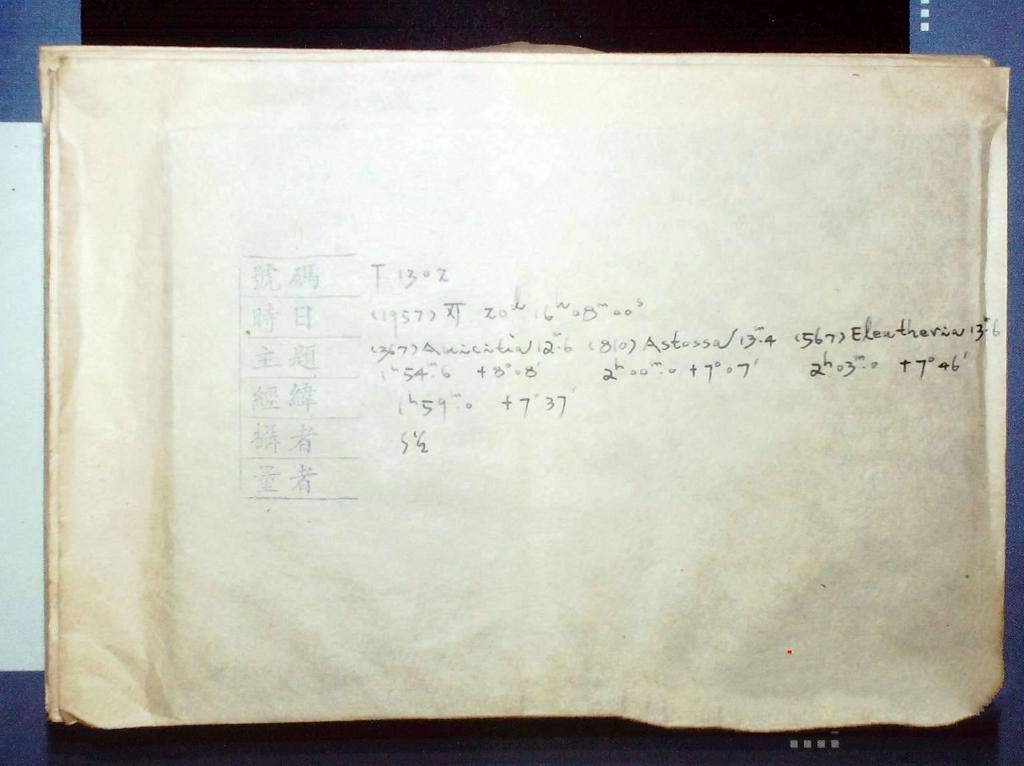 號碼 T 1302
時日 (1957) XI 20ᵈ 16ʰ08ᵐ00ˢ
主題 (367) Amicitia 12ᵐ.6 (810) Atossa 13ᵐ.4 (567) Eleutheria 13ᵐ.6
1ʰ54ᵐ.6 +8°08′ 2ʰ00ᵐ.0 +7°07′ 2ʰ03ᵐ.0 +7°46′
經緯 1ʰ59ᵐ.0 +7°37′
攝者
量者